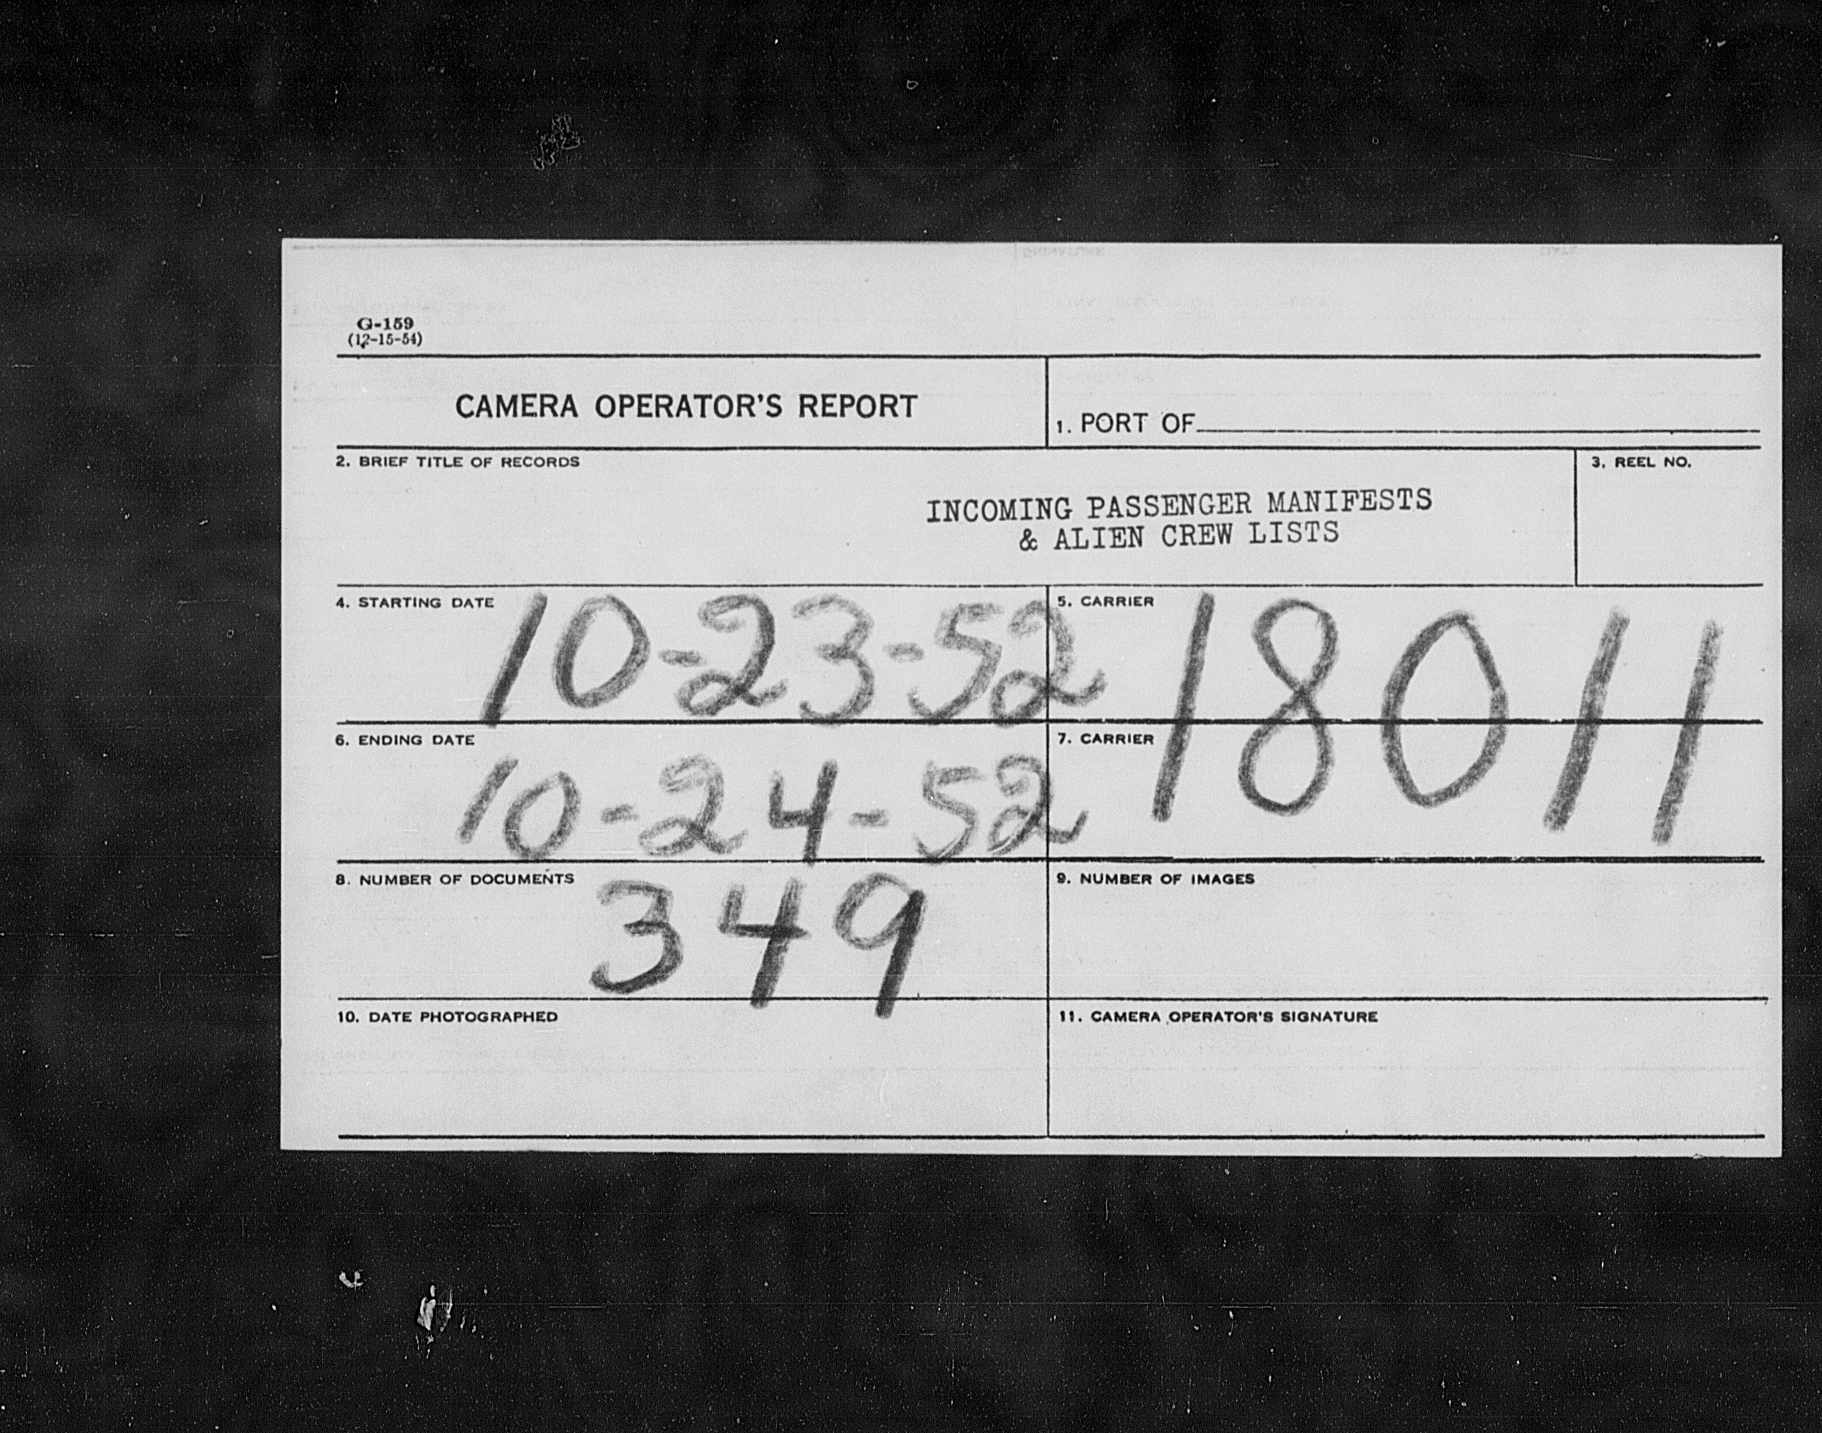 G-159
(12-15-54)
CAMERA OPERATOR'S REPORT
1. PORT OF
2. BRIEF TITLE OF RECORDS
INCOMING PASSENGER MANIFESTS
& ALIEN CREW LISTS
3. REEL NO.
4. STARTING DATE
10-23-52
5. CARRIER
18011
6. ENDING DATE
10-24-52
7. CARRIER
8. NUMBER OF DOCUMENTS
349
9. NUMBER OF IMAGES
10. DATE PHOTOGRAPHED
11. CAMERA OPERATOR'S SIGNATURE